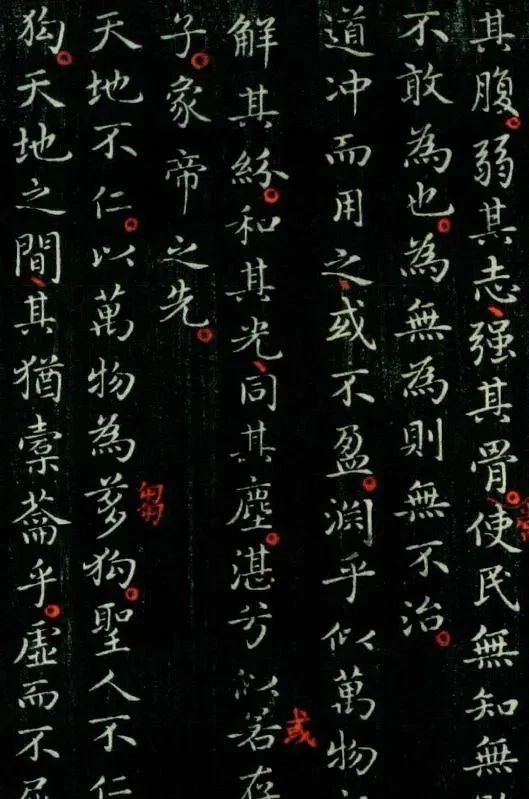 其腹。弱其志、强其骨。使民無知無
不敢為也。為無為則無不治。
道冲而用之、或不盈。渕乎似萬物
解其紛。和其光、同其塵。湛兮似若存
或
子象帝之先。
天地不仁。以萬物為芻狗。聖人不仁
芻
狗。天地之間、其猶橐籥乎。虛而不